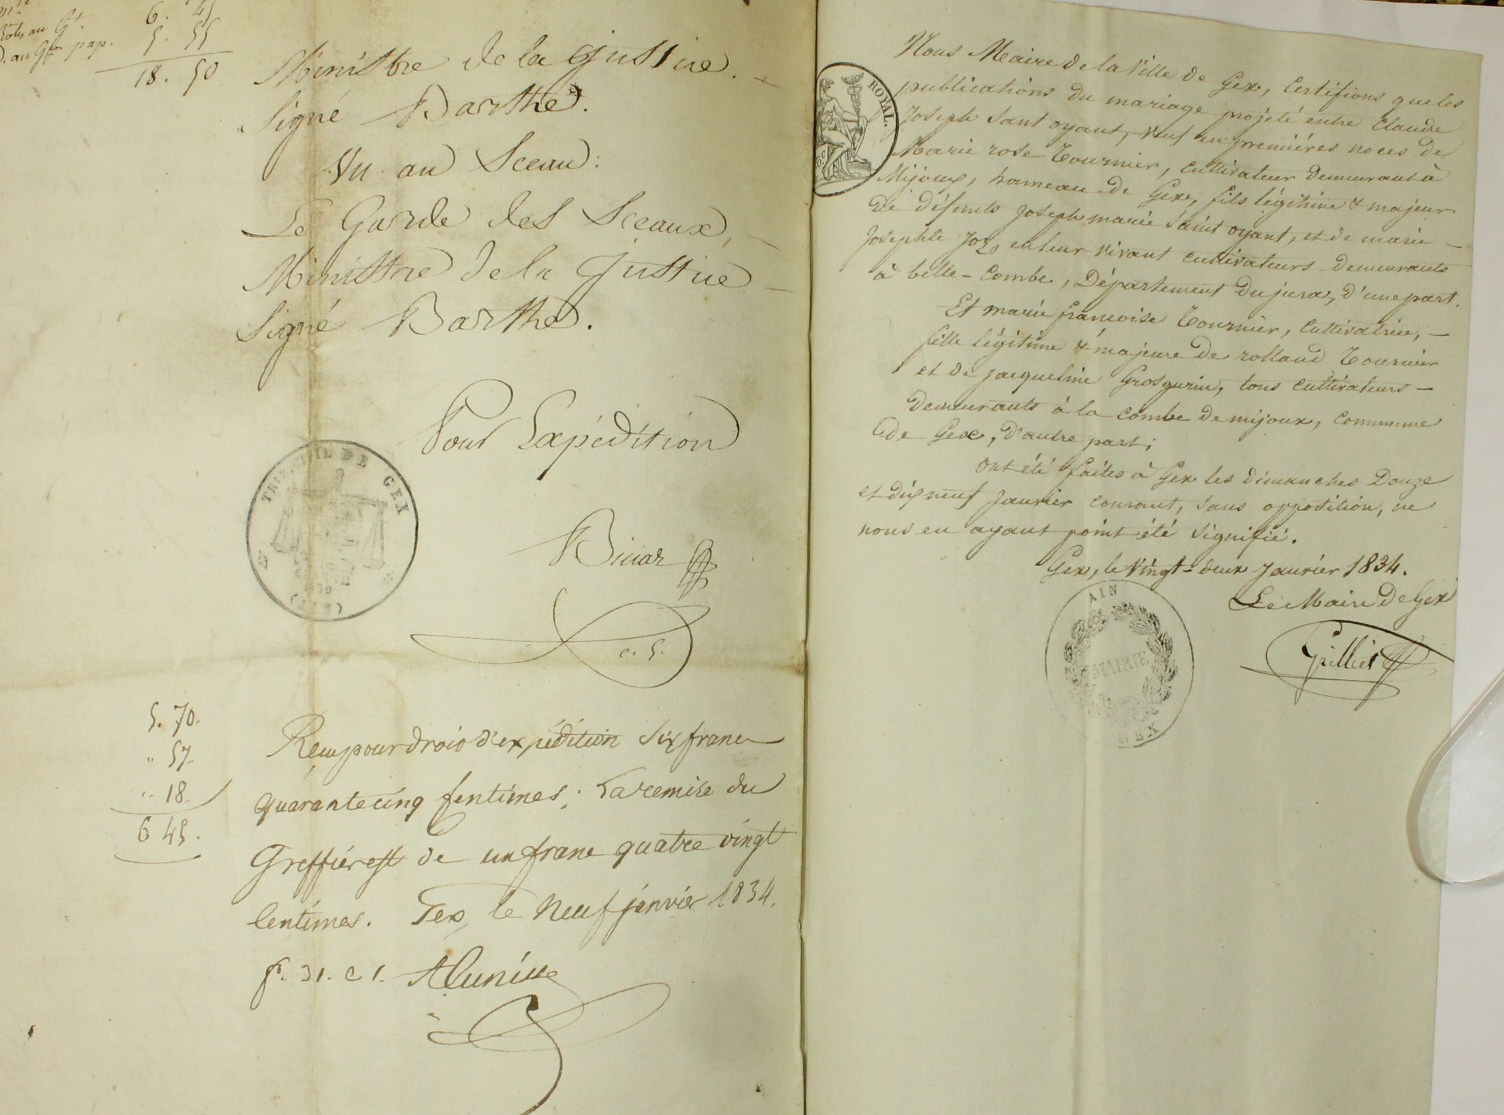 6. 45
5. 55
18. 50
Ministre de la Justice.
Signé Barthe.
Vu au Sceau:
Le Garde des Sceaux,
Ministre de la Justice
Signé Barthe.
Pour Expédition
TRIB. CIVIL DE GEX
(AIN)
c. 5.
5. 70.
" 57.
" 18.
6 45.
Reçu pour droit d'expédition six francs
quarante cinq centimes; La remise du
Greffier est de un franc quatre vingt
Centimes. Gex, le Neuf janvier 1834.
f. 31. c 1.
ROYAL.
Nous Maire de la Ville de Gex, Certifions que les
publications du mariage projeté entre Claude
Joseph Saint oyant, veuf en premières noces de
Marie rose Tournier, cultivateur demeurant à
Mijoux, hameau de Gex, fils légitime & majeur
de défunts Joseph marie Saint oyant, et de marie
Josephte Joz, en leur vivant cultivateurs demeurants
à belle-Combe, Département du jura, d'une part.
Et marie françoise Tournier, Cultivatrice,
fille légitime & majeure de rolland Tournier
et de jacqueline Grosgurin, tous cultivateurs
demeurants à la combe de mijoux, commune
de Gex, d'autre part;
Ont été faites à Gex les dimanches Douze
et dix neuf Janvier courant, sans opposition, ne
nous en ayant point été signifié.
Gex, le Vingt-deux Janvier 1834.
Le Maire de Gex
AIN
MAIRIE
GEX